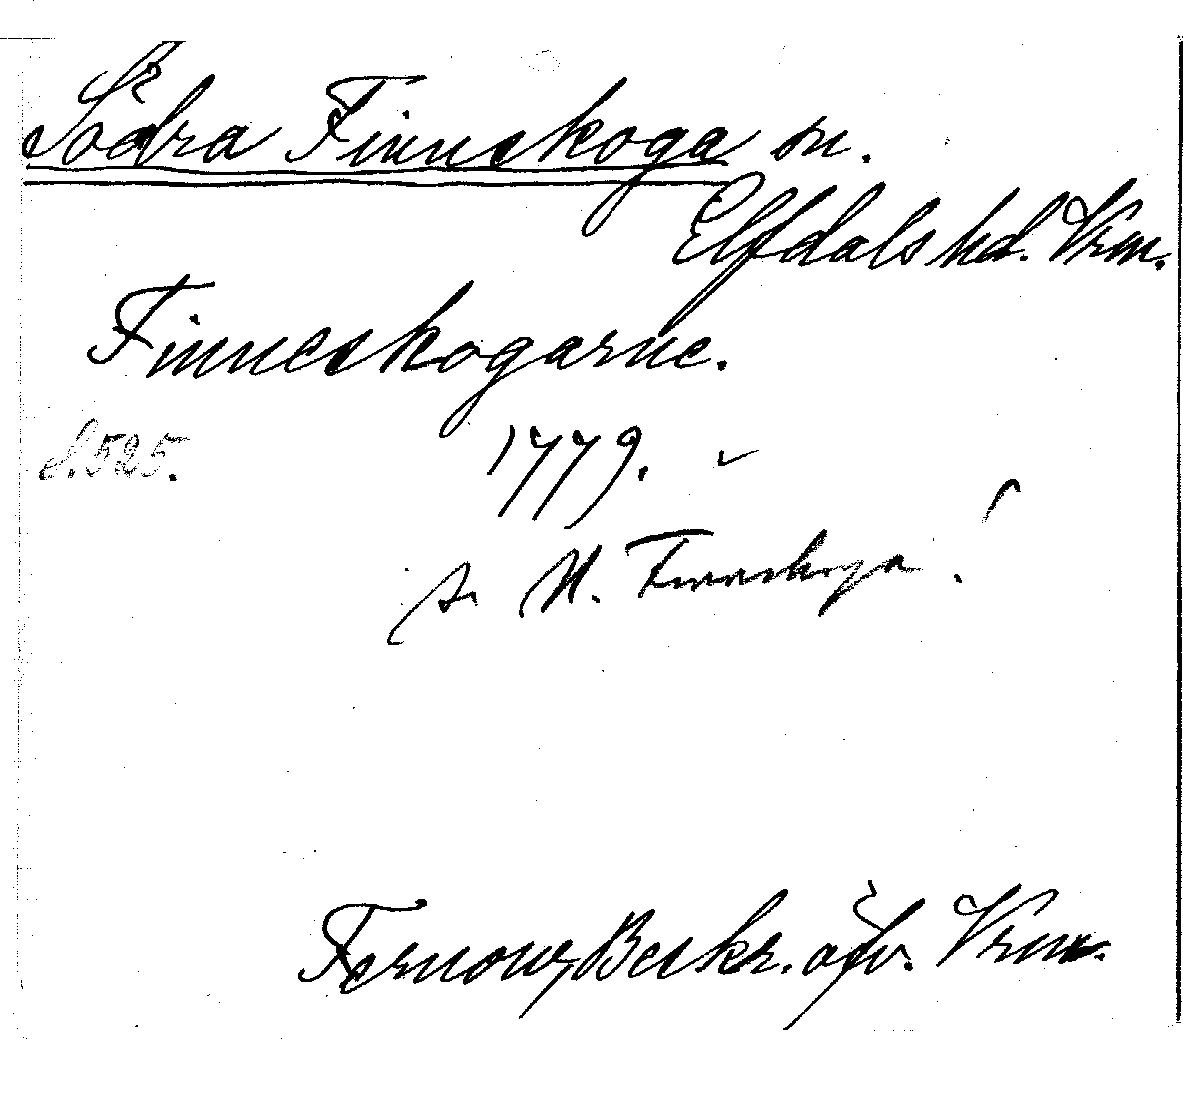 Södra Finnskoga sn.
Elfdals hd. Vrm.
Finneskogarne.
S. 525. 1779.
N. Finnskoga.
Fernow, Beskr. öfv. Vrm.